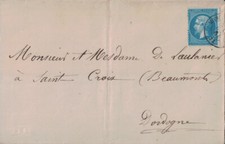 Monsieur et Mesdame D. Saulanier
à Saint Croix (Beaumont)
Dordogne